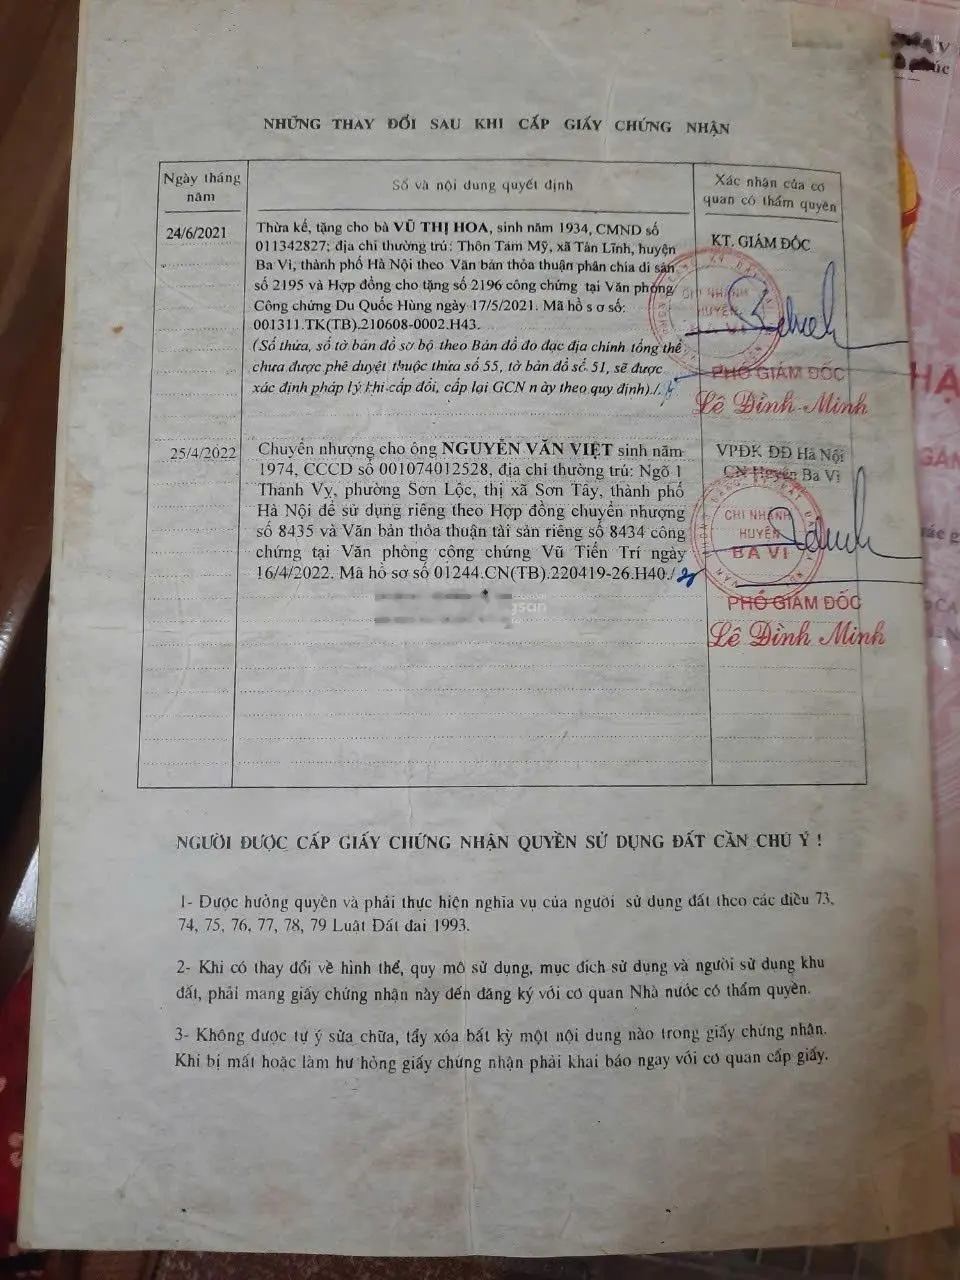 NHỮNG THAY ĐỔI SAU KHI CẤP GIẤY CHỨNG NHẬN
Ngày tháng năm
Số và nội dung quyết định
Xác nhận của cơ quan có thẩm quyền
24/6/2021
Thừa kế, tặng cho bà VŨ THỊ HOA, sinh năm 1934, CMND số
011342827; địa chỉ thường trú: Thôn Tam Mỹ, xã Tản Lĩnh, huyện
Ba Vì, thành phố Hà Nội theo Văn bản thỏa thuận phân chia di sản
số 2195 và Hợp đồng cho tặng số 2196 công chứng tại Văn phòng
Công chứng Du Quốc Hùng ngày 17/5/2021. Mã hồ s ơ số:
001311.TK(TB).210608-0002.H43.
(Số thửa, số tờ bản đồ sơ bộ theo Bản đồ đo đạc địa chính tổng thể
chưa được phê duyệt thuộc thửa số 55, tờ bản đồ số 51, sẽ được
xác định pháp lý khi cấp đổi, cấp lại GCN này theo quy định)./.
KT. GIÁM ĐỐC
CHI NHÁNH
HUYỆN
BA VÌ
PHÓ GIÁM ĐỐC
Lê Đình Minh
25/4/2022
Chuyển nhượng cho ông NGUYỄN VĂN VIỆT sinh năm
1974, CCCD số 001074012528, địa chỉ thường trú: Ngõ 1
Thanh Vy, phường Sơn Lộc, thị xã Sơn Tây, thành phố
Hà Nội để sử dụng riêng theo Hợp đồng chuyển nhượng
số 8435 và Văn bản thỏa thuận tài sản riêng số 8434 công
chứng tại Văn phòng công chứng Vũ Tiến Trí ngày
16/4/2022. Mã hồ sơ số 01244.CN(TB).220419-26.H40./
VPĐK ĐĐ Hà Nội
CN Huyện Ba Vì
CHI NHÁNH
HUYỆN
BA VÌ
PHÓ GIÁM ĐỐC
Lê Đình Minh
NGƯỜI ĐƯỢC CẤP GIẤY CHỨNG NHẬN QUYỀN SỬ DỤNG ĐẤT CẦN CHÚ Ý !
1- Được hưởng quyền và phải thực hiện nghĩa vụ của người sử dụng đất theo các điều 73,
74, 75, 76, 77, 78, 79 Luật Đất đai 1993.
2- Khi có thay đổi về hình thể, quy mô sử dụng, mục đích sử dụng và người sử dụng khu
đất, phải mang giấy chứng nhận này đến đăng ký với cơ quan Nhà nước có thẩm quyền.
3- Không được tự ý sửa chữa, tẩy xóa bất kỳ một nội dung nào trong giấy chứng nhận.
Khi bị mất hoặc làm hư hỏng giấy chứng nhận phải khai báo ngay với cơ quan cấp giấy.